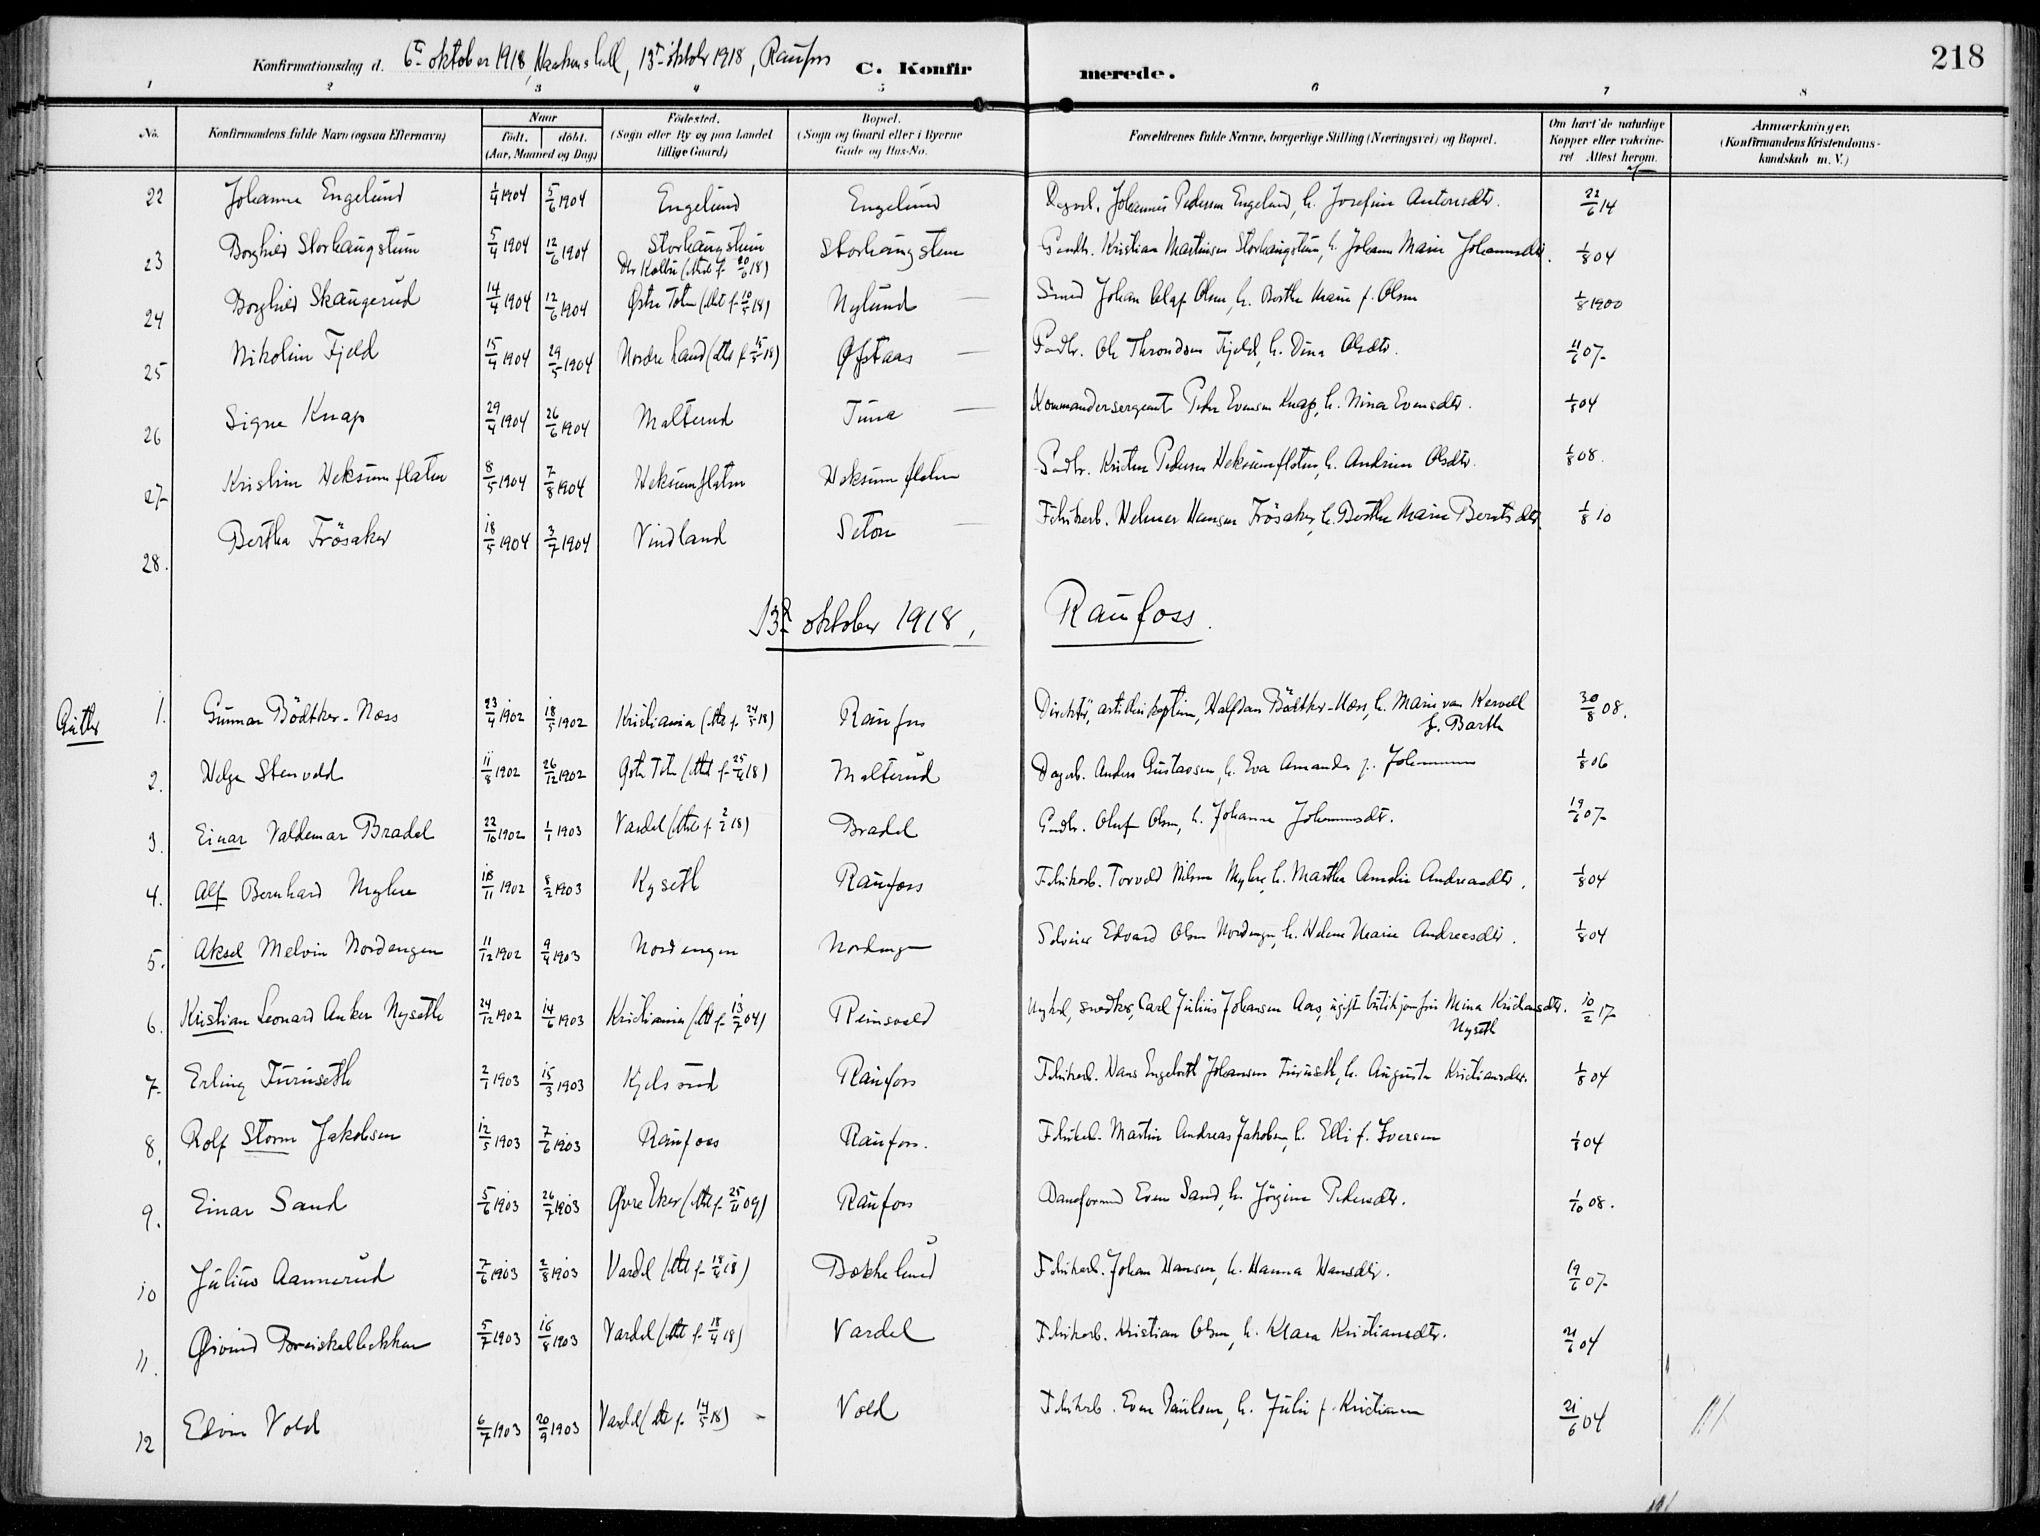 218
Konfirmationsdag d. 6te oktober 1918, 13de oktober 1918, Raufoss
C. Konfirmerede.
1 2 3 4 5 6 7 8
No. Konfirmandens fulde Navn (ogsaa Efternavn) Naar født. døbt. (Aar, Maaned og Dag) Fødested. (Sogn eller By og paa Landet tillige Gaard) Bopæl. (Sogn og Gaard eller i Byerne Gade og Hus-No. Forældrenes fulde Navne, borgerlige Stilling (Næringsvei) og Bopæl. Om havt de naturlige Kopper eller vakcineret Attest herom. Anmærkninger. (Konfirmandens Kristendomskundskab m. V.)
22 Johanna Engelund 1/4 1904 5/6 1904 Engelund Engelund Johannes Pedersen Engelund, h. Josefine Antonsdtr. 22/6 14
23 Borghild Storhaugstuen 5/4 1904 12/6 1904 Storhaugstuen Vstr Kolbu (att f. 20/6 18) Storhaugstuen Gardbr. Kristian Martinsen Storhaugstuen, h. Johanne Marie Johannesdtr. 1/8 04
24 Borghild Skaugerud 14/4 1904 12/6 1904 Østre Toten (att f. 10/5 18) Nylund Smed Johan Olaf Olsen, h. Berthe Marie f. Olsen 1/8 1900
25 Nikoline Fjeld 15/4 1904 29/5 1904 Nordre Land (att f. 15/5 18) Øfstaas Gardbr. Ole Throndsen Fjeld, h. Dina Olsdtr. 11/6 07
26 Signe Knap 29/4 1904 26/6 1904 Malterud Tuna Kommandersergeant Peder Evensen Knap, h. Nina Evensdtr. 1/8 04
27 Kristine Heksumflaten 8/5 1904 7/8 1904 Heksumflaten Heksumflaten Gardbr. Kristen Pedersen Heksumflaten, h. Andrine Olsdtr. 1/8 08.
28. Bertha Frøsaker 18/5 1904 3/7 1904 Vindland Seton Fabrikarb. Helmer Hansen Frøsaker, h. Berthe Marie Berntsdtr. 1/8 10
13de oktober 1918, Raufoss.
Gutter
1. Gunnar Bødtker-Næss 23/4 1902 18/5 1902 Kristiania (att f. 24/5 18) Raufoss Direktør, artillerikaptein, Halfdan Bødtker-Næss, h. Marie van Kervell
f. Barth 30/8 08.
2. Helge Stenvold 11/8 1902 26/12 1902 Østre Toten (att f. 25/4 18) Malterud Dagarb. Anders Gustavsen, h. Eva Amanda f. Johannesen 1/8 06
3. Einar Valdemar Bradel 22/10 1902 1/1 1903 Vardal (att f. 2/2 18) Bradel Gardbr. Oluf Olsen, h. Johanne Johannesdtr. 19/6 07
4. Alf Bernhard Myhre 18/11 1902 8/2 1903 Kyseth Raufoss Fabrikarb. Torvald Nilsen Myhre, h. Marthe Amalie Andreasdtr. 1/8 04
5. Aksel Melvin Nordengen 11/12 1902 9/4 1903 Nordengen Nordengen Selveier Edvard Olsen Nordengen, h. Helene Marie Andreasdtr. 1/8 04
6. Kristian Leonard Anker Nyseth 24/12 1902 14/6 1903 Kristiania (att f. 13/7 04) Reinsvold Ungkarl, snedker, Carl Julius Johansen Aas, ugift butikjomfru Mina Kristiansdtr.
Nyseth 10/2 17
7. Erling Furuseth 2/1 1903 15/3 1903 Kjelsrud Raufoss Fabrikarb. Hans Engebreth Johansen Furuseth, h. Augusta Kristiansdtr. 1/8 04
8. Rolf Storm Jakobsen 12/5 1903 7/6 1903 Raufoss Raufoss. Fabrikarb. Martin Andreas Jakobsen, h. Elli f. Iversen 1/8 04
9. Einar Sand 5/6 1903 26/7 1903 Øvre Eker (att f. 25/11 09) Raufoss Baneformand Even Sand, h. Jørgine Pedersdtr. 1/10 08.
10 Julius Aannerud 7/6 1903 2/8 1903 Vardal (att f. 18/4 18) Bækkelund Fabrikarb. Johan Hansen, h. Hanna Hansdtr. 19/6 07
11. Øivind Breiskalbekken 5/7 1903 16/8 1903 Vardal (att f. 18/4 18) Vardal Fabrikarb. Kristian Olsen, h. Klara Kristiansdtr. 21/6 04
12 Edvin Vold 6/7 1903 20/9 1903 Vardal (att f. 14/5 18) Vold Fabrikarb. Even Paulsen, h. Julie f. Kristiansen 21/6 04